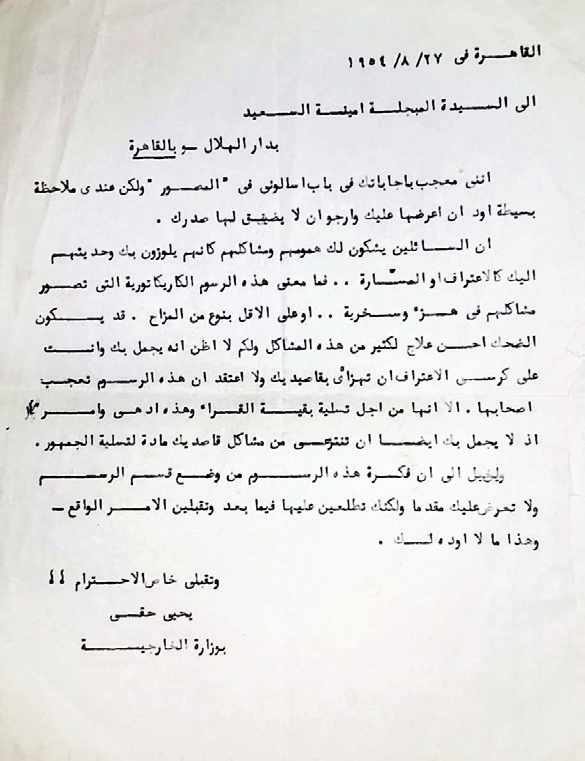 القاهرة فى ٢٧/ ٨/ ١٩٥٤
الى السيدة المبجلة امينة السعيد
بدار الهلال – بالقاهرة
اننى معجب باجاباتك فى باب اسالونى فى "المصور" ولكن عندى ملاحظة
بسيطة اود ان اعرضها عليك وارجو ان لا يضيق لها صدرك .
ان السائلين يشكون لك همومهم ومشاكلهم كانهم يلوزون بك وحديثهم
اليك كالاعتراف او المسارّة .. فما معنى هذه الرسوم الكاريكاتورية التى تصور
مشاكلهم فى هزء وسخرية .. او على الاقل بنوع من المزاح . قد يكون
الضحك احسن علاج لكثير من هذه المشاكل ولكم لا اظن انه يجمل بك وانت
على كرسى الاعتراف ان تهزأى بقاصديك ولا اعتقد ان هذه الرسوم تعجب
اصحابها . الا انها من اجل تسلية بقية القراء وهذه ادهى وامر
اذ لا يجمل بك ايضا ان تنتزعى من مشاكل قاصديك مادة لتسلية الجمهور .
ولخيل الى ان فكرة هذه الرسوم من وضع قسم الرسم
ولا تعرض عليك مقدما ولكنك تطلعين عليها فيما بعد وتقبلين الامر الواقع –
وهذا ما لا اوده لك .
وتقبلى خاص الاحترام ،،
يحيى حقى
بوزارة الخارجية